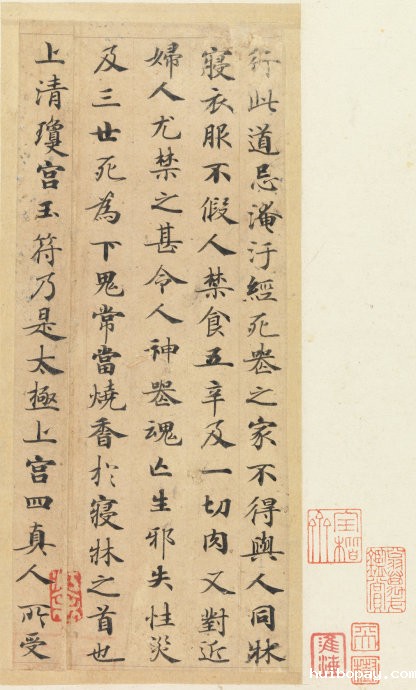 行此道忌淹汙經死喪之家不得與人同牀
寢衣服不假人禁食五辛及一切肉又對近
婦人尤禁之甚令人神喪魂亡生邪失性災
及三世死為下鬼常當燒香於寢牀之首也
上清瓊宮玉符乃是太極上宮四真人所受
huibopay.com